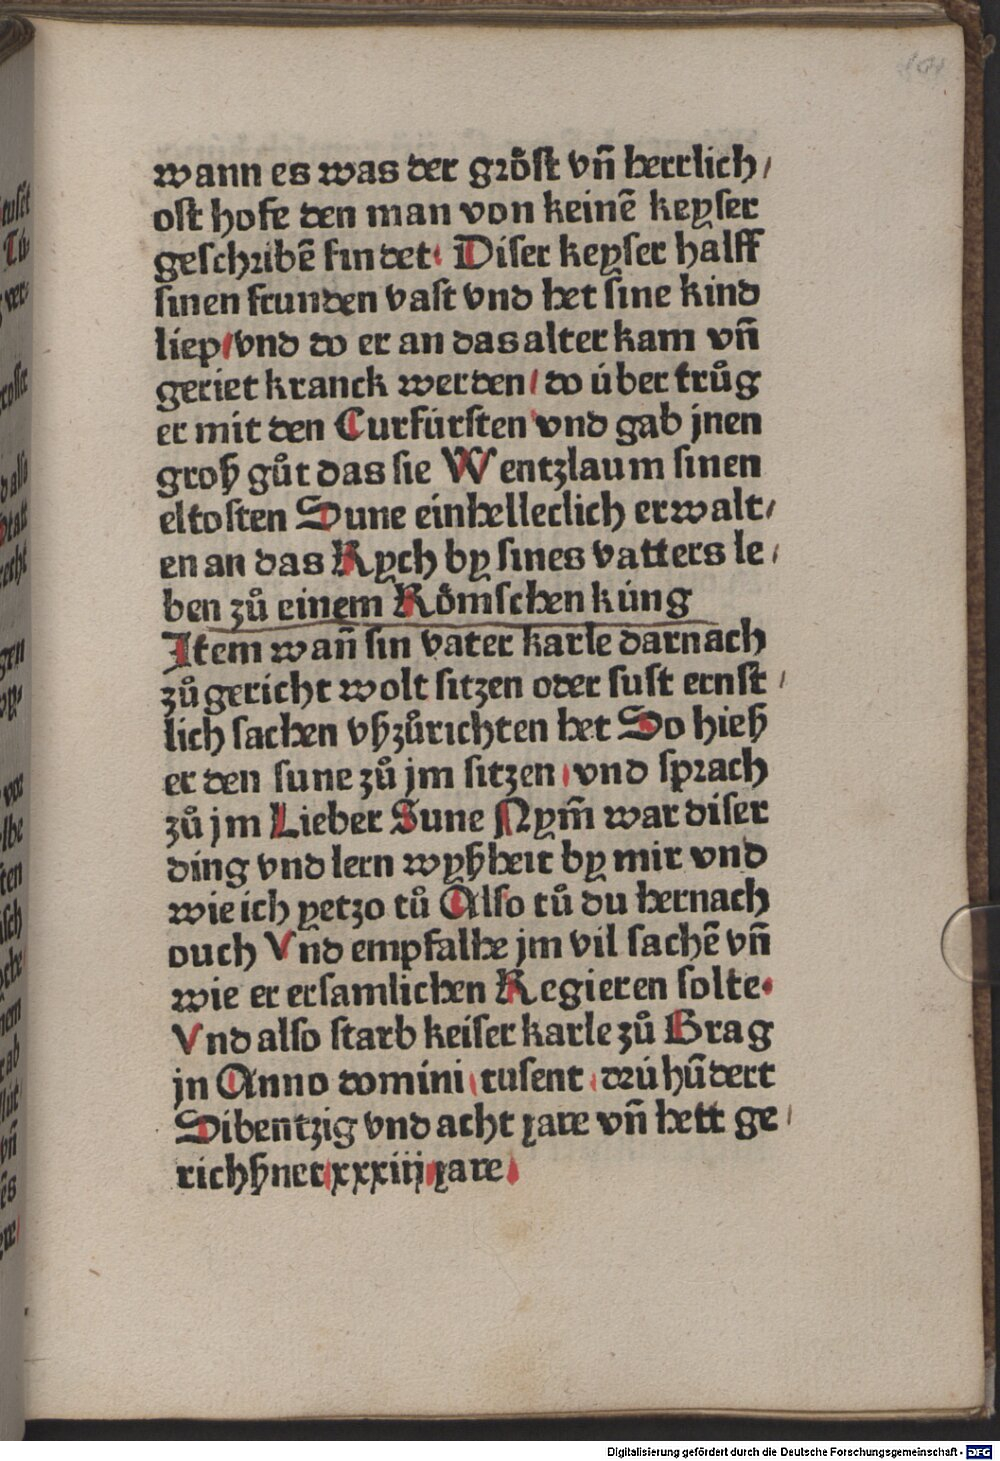 wann es was der gröst vn̄ herrlich/
ost hofe den man von keinē keyser
geschribē findet· Diser keyser halff
sinen frunden vast vnd het sine kind
liep/vnd do er an das alter kam vn̄
geriet kranck werden/ do úber trůg
er mit den Curfúrsten vnd gab jnen
groß gůt das sie Wentzlaum sinen
eltosten Sune einhelleclich erwalt/
en an das Rych by sines vatters le/
ben zů einem Römschen kúng
Item wan̄ sin vater karle darnach
zů gericht wolt sitzen oder sust ernst/
lich sachen vßzůrichten het So hieß
er den sune zů jm sitzen/vnd sprach
zů jm Lieber Sune Nym̄ war diser
ding vnd lern wyßheit by mir vnd
wie ich yetzo tů Also tů du hernach
ouch Vnd empfalhe jm vil sachē vn̄
wie er ersamlichen Regieren solte·
Vnd also starb keiser karle zů Brag
jn Anno domini/tusent/drú hūdert
Sibentzig vnd acht jare vn̄ hett ge/
richßnet/xxxiij/jare/
Digitalisierung gefördert durch die Deutsche Forschungsgemeinschaft - DFG